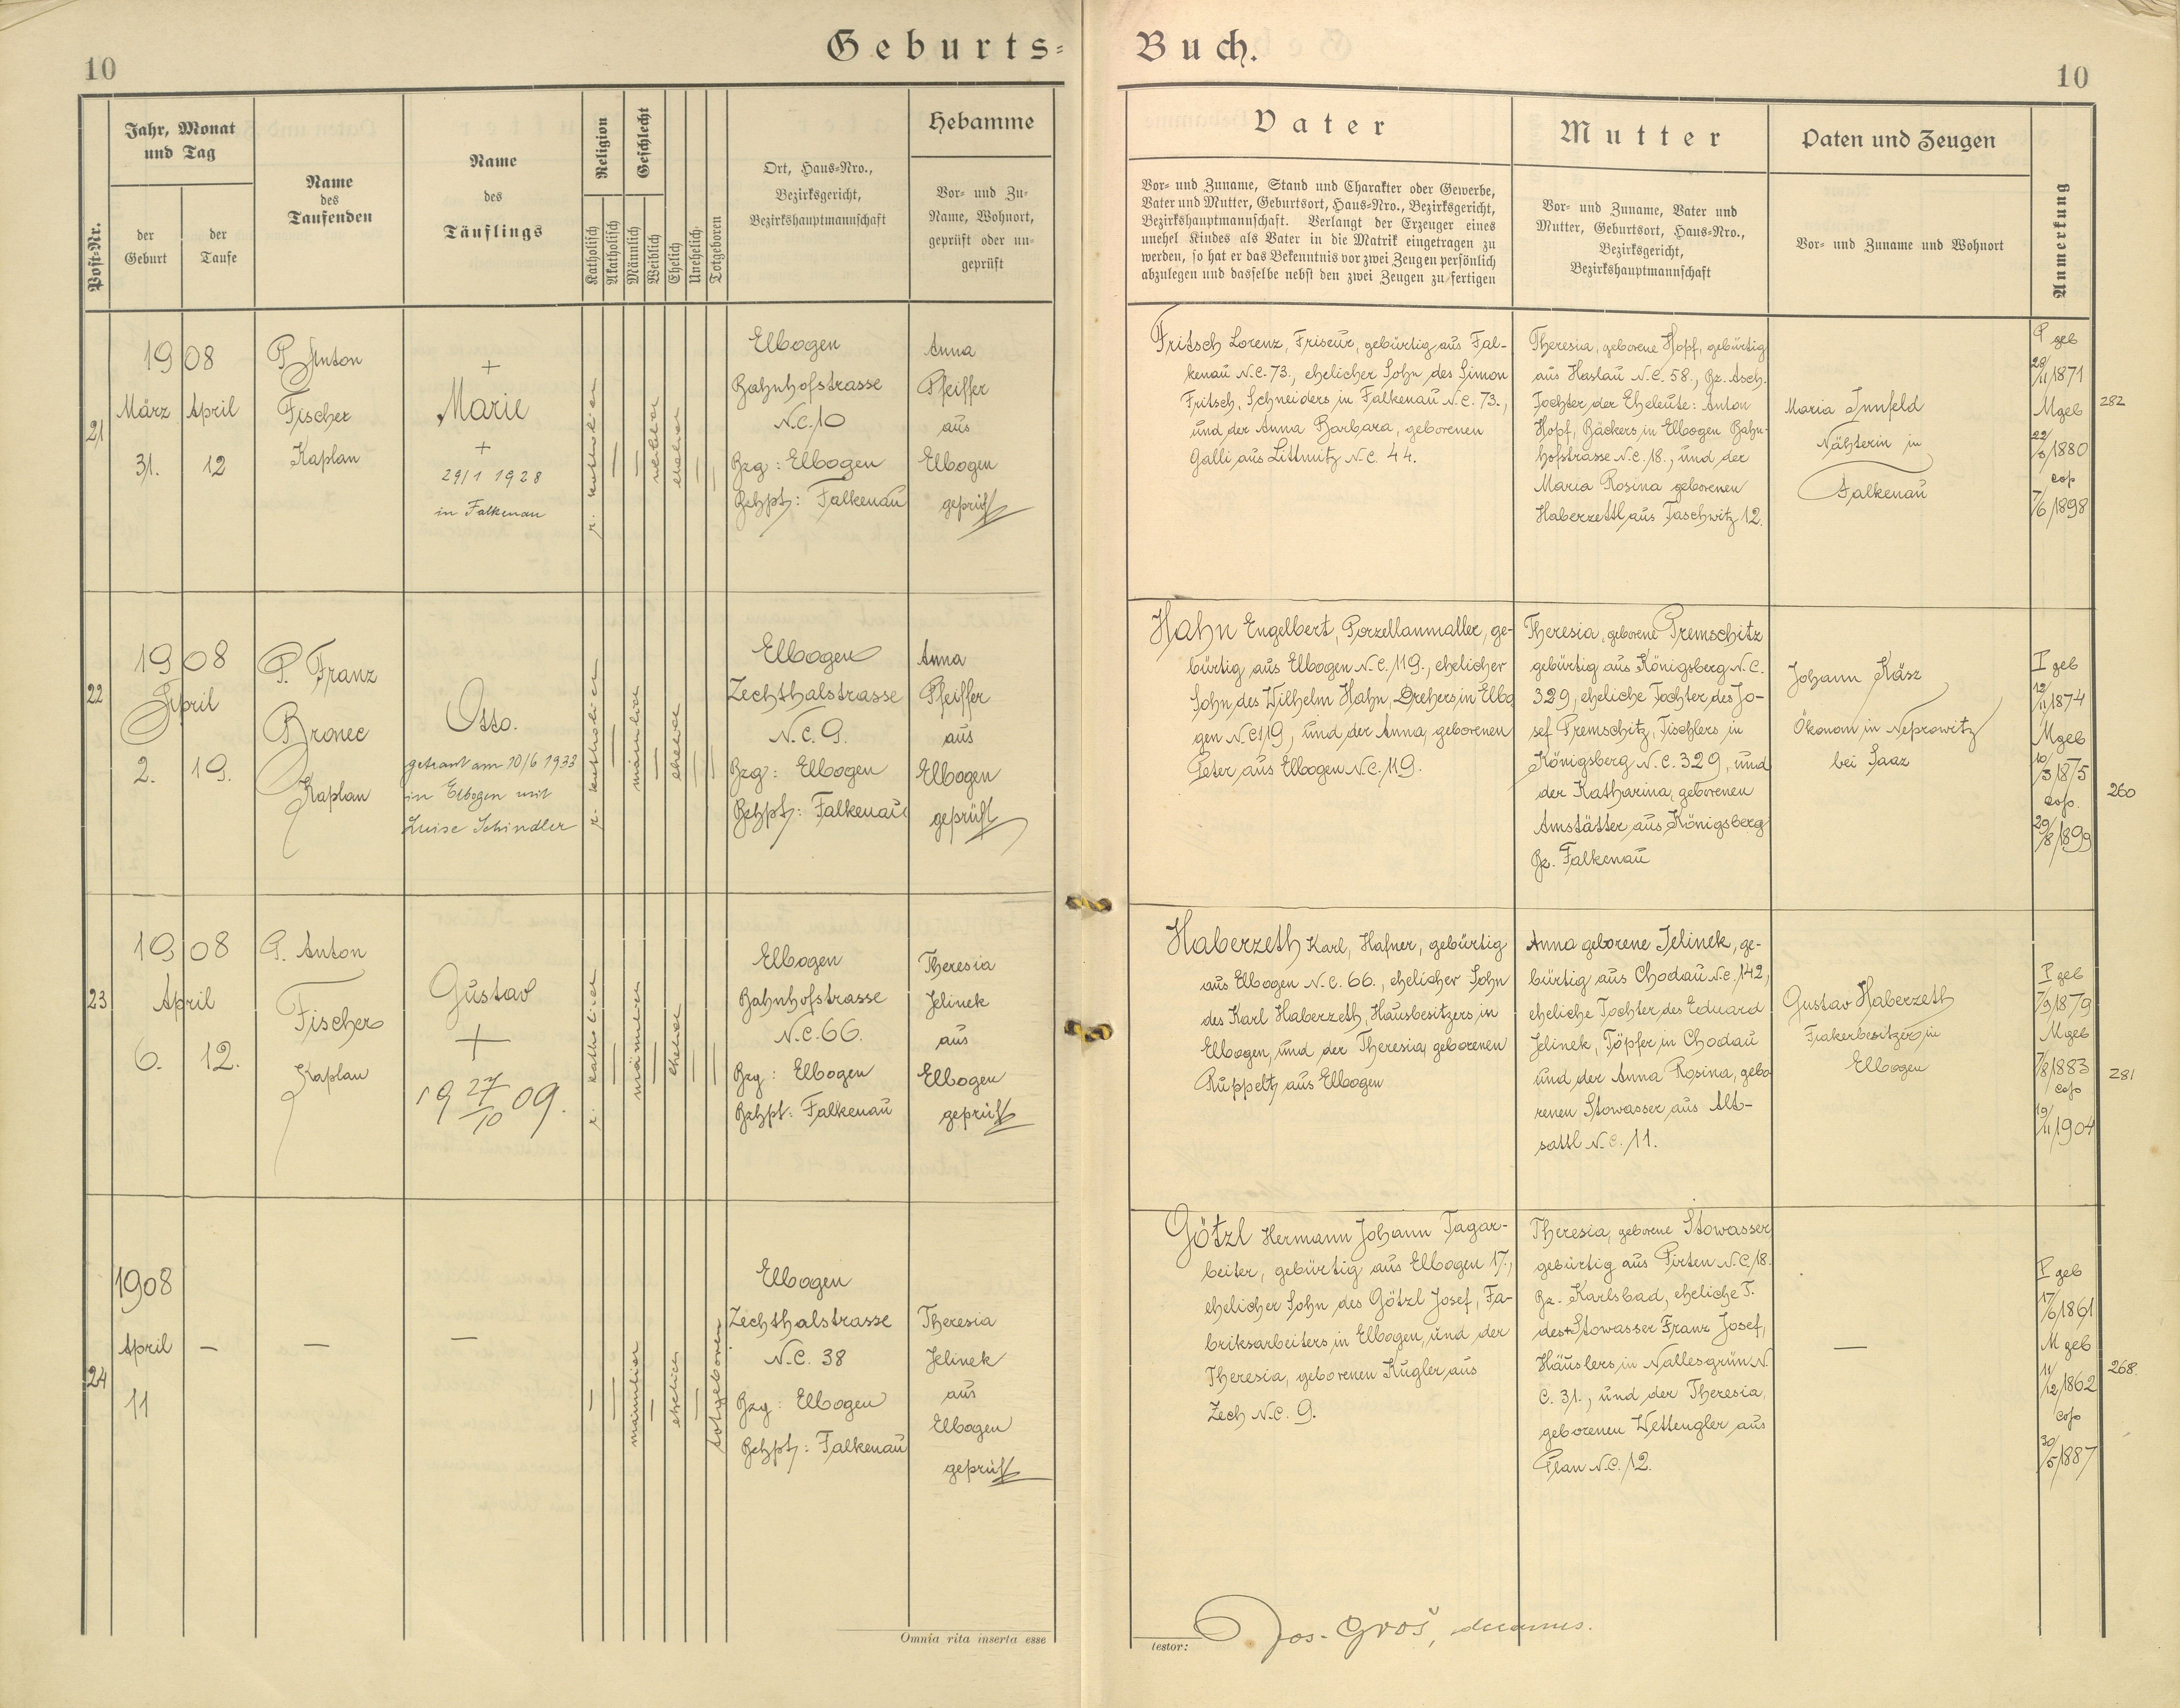 Geburts-Buch.
10
10
Post-Nr.
Jahr, Monat
und Tag
der
Geburt
der
Taufe
Name
des
Taufenden
Name
des
Täuflings
Religion
Katholisch
Akatholisch
Geschlecht
Männlich
Weiblich
Ehelich
Unehelich
Totgeboren
Ort, Haus-Nro.,
Bezirksgericht,
Bezirkshauptmannschaft
Hebamme
Vor- und Zu-
Name, Wohnort,
geprüft oder un-
geprüft
Vater
Vor- und Zuname, Stand und Charakter oder Gewerbe,
Vater und Mutter, Geburtsort, Haus-Nro., Bezirksgericht,
Bezirkshauptmannschaft. Verlangt der Erzeuger eines
unehel Kindes als Vater in die Matrik eingetragen zu
werden, so hat er das Bekenntnis vor zwei Zeugen persönlich
abzulegen und dasselbe nebst den zwei Zeugen zu fertigen
Mutter
Vor- und Zuname, Vater und
Mutter, Geburtsort, Haus-Nro.,
Bezirksgericht,
Bezirkshauptmannschaft
Paten und Zeugen
Vor- und Zuname und Wohnort
Anmerkung
21
1908
März April
31. 12
P. Anton
Fischer
Kaplan
+
Marie
+
29/1 1928
in Falkenau
r. katholisch
—
—
weiblich
ehelich
—
—
Elbogen
Bahnhofstrasse
N.C. 10
Bzg: Elbogen
Bzhpt: Falkenau
Anna
Pfeiffer
aus
Elbogen
geprüft
Fritsch Lorenz, Friseur, gebürtig aus Fal-
kenau N.C. 73., ehelicher Sohn des Simon
Fritsch, Schneiders in Falkenau N.C. 73.,
und der Anna Barbara, geborenen
Galli aus Littmitz N.C. 44.
Theresia, geborene Hopf, gebürtig
aus Haslau N.C. 58., Bz. Asch.
Tochter der Eheleute: Anton
Hopf, Bäckers in Elbogen Bahn-
hofstrasse N.C. 18., und der
Maria Rosina geborenen
Haberzettl aus Taschwitz 12.
Maria Innfeld
Nähterin in
Falkenau
P geb
28/11 1871
M geb
22/8 1880
cop
7/6 1898
282
22
1908
April
2. 19.
P. Franz
Bronec
Kaplan
Otto.
getraut am 10/6 1933
in Elbogen mit
Luise Schindler
r. katholisch
—
männlich
—
ehelich
—
—
Elbogen
Zechthalstrasse
N.C. 9.
Bzg: Elbogen
Bzhpt: Falkenau
Anna
Pfeiffer
aus
Elbogen
geprüft
Hahn Engelbert, Porzellanmaller, ge-
bürtig aus Elbogen N.C. 119., ehelicher
Sohn des Wilhelm Hahn, Drehers in Elbo
gen N.C 119, und der Anna, geborenen
Peter aus Elbogen N.C. 119.
Theresia, geborene Premschitz
gebürtig aus Königsberg N.C.
329, eheliche Tochter des Jo-
sef Premschitz, Tischlers in
Königsberg N.C. 329, und
der Katharina, geborenen
Amstätter aus Königsberg
Bz. Falkenau
Johann Käsz
Ökonom in Neprowitz
bei Saaz
P geb
12/11 1874
M geb
10/3 1875
cop.
29/8 1899
260
23
1908
April
6. 12.
P. Anton
Fischer
Kaplan
Gustav
+
19 27/10 09.
r. katholisch
—
männlich
—
ehelich
—
—
Elbogen
Bahnhofstrasse
N.C. 66.
Bzg: Elbogen
Bzhpt: Falkenau
Theresia
Jelinek
aus
Elbogen
geprüft
Haberzeth Karl, Hafner, gebürtig
aus Elbogen N.C. 66., ehelicher Sohn
des Karl Haberzeth, Hausbesitzers in
Elbogen, und der Theresia, geborenen
Ruppeltz aus Elbogen
Anna geborene Jelinek, ge-
bürtig aus Chodau N.C. 142,
eheliche Tochter des Eduard
Jelinek, Töpfer in Chodau
und der Anna Rosina, gebo
renen Stowasser aus Alt-
sattl N.C. 11.
Gustav Haberzeth
Fiakerbesitzer in
Elbogen
P geb
7/9 1879
M geb
7/8 1883
cop
19/11 1904
281
24
1908
April
11
—
—
—
—
—
männlich
—
ehelich
—
totgeboren
Elbogen
Zechthalstrasse
N.C. 38
Bzg: Elbogen
Bzhpt: Falkenau
Theresia
Jelinek
aus
Elbogen
geprüft
Götzl Hermann Johann Tagar-
beiter, gebürtig aus Elbogen 17.,
ehelicher Sohn des Götzl Josef, Fa-
briksarbeiters in Elbogen, und der
Theresia, geborenen Kugler aus
Zech N.C. 9.
Theresia, geborene Stowasser
gebürtig aus Pirten N.C. 18.
Bz. Karlsbad, eheliche T.
des + Stowasser Franz Josef,
Häuslers in Nallesgrün N.
C. 31., und der Theresia,
geborenen Wettengler aus
Plan N.C. 12.
—
P geb
17/6 1861
M geb
11/12 1862
cop
30/5 1887
268.
Omnia rita inserta esse
testor:
Jos. Groš, decanus.